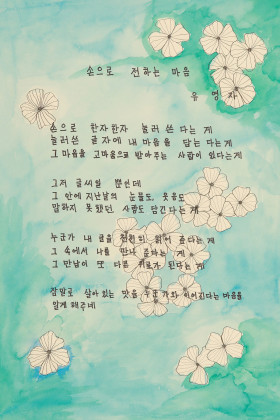 손으로 전하는 마음
유 영 자
손으로 한자한자 눌러 쓴다는 게
눌러쓴 글자에 내 마음을 담는 다는게
그 마음을 고마움으로 받아주는 사람이 있다는게
그저 글씨일 뿐인데
그 안에 지난날의 눈물도 웃음도
말하지 못했던 사랑도 담긴다는게
누군가 내 글을 천천히 읽어 준다는게
그 속에서 나를 만나 준다는 게
그 만남이 또 다른 위로가 된다는게
정말로 살아 있는 맛을 누군가와 이어진다는 마음을
알게 해준네